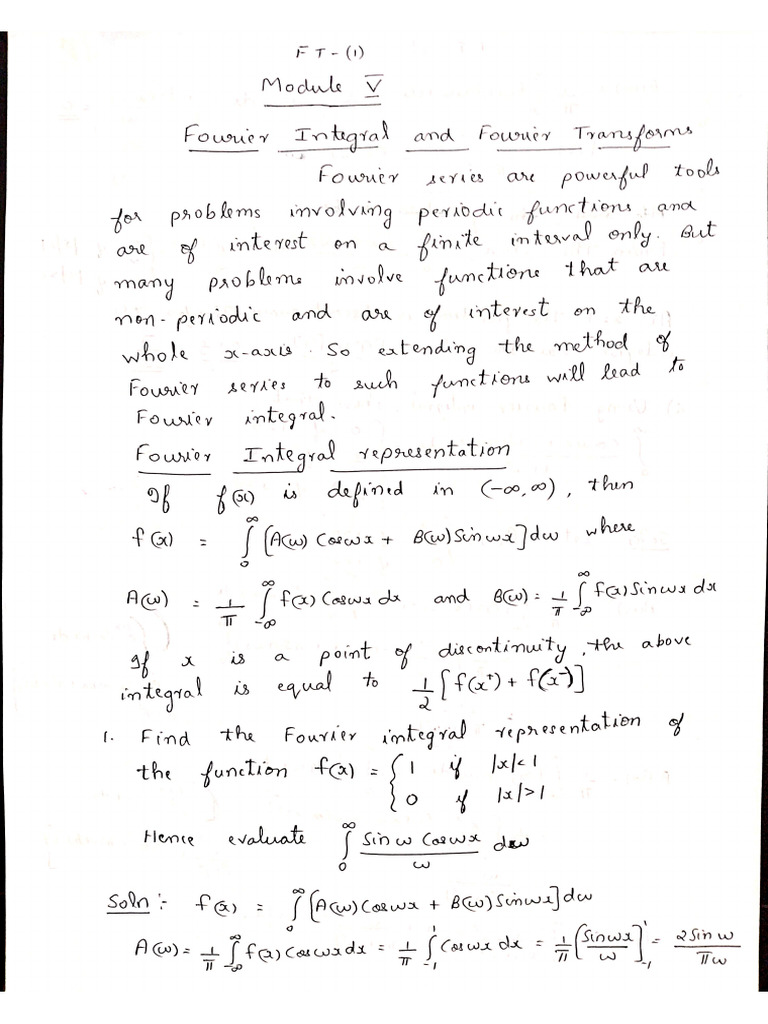 FT-(1)
Module V
Fourier Integral and Fourier Transforms
Fourier series are powerful tools
for problems involving periodic functions and
are of interest on a finite interval only. But
many problems involve functions that are
non-periodic and are of interest on the
whole x-axis. So extending the method of
Fourier series to such functions will lead to
Fourier integral.
Fourier Integral representation
If f(x) is defined in (-∞,∞), then
f(x) = ∫₀^∞ [A(ω) Cosωx + B(ω) Sinωx] dω where
A(ω) = 1/π ∫_{-∞}^∞ f(x) Cosωx dx and B(ω) = 1/π ∫_{-∞}^∞ f(x) Sinωx dx
If x is a point of discontinuity, the above
integral is equal to 1/2 [f(x⁺) + f(x⁻)]
1. Find the Fourier integral representation of
the function f(x) = { 1 if |x|<1
0 if |x|>1
Hence evaluate ∫₀^∞ (Sin ω Cosωx)/ω dω
Soln:- f(x) = ∫₀^∞ [A(ω) Cosωx + B(ω) Sinωx] dω
A(ω) = 1/π ∫_{-∞}^∞ f(x) Cosωx dx = 1/π ∫_{-1}^1 Cosωx dx = 1/π [Sinωx/ω]_{-1}^1 = 2Sin ω/πω